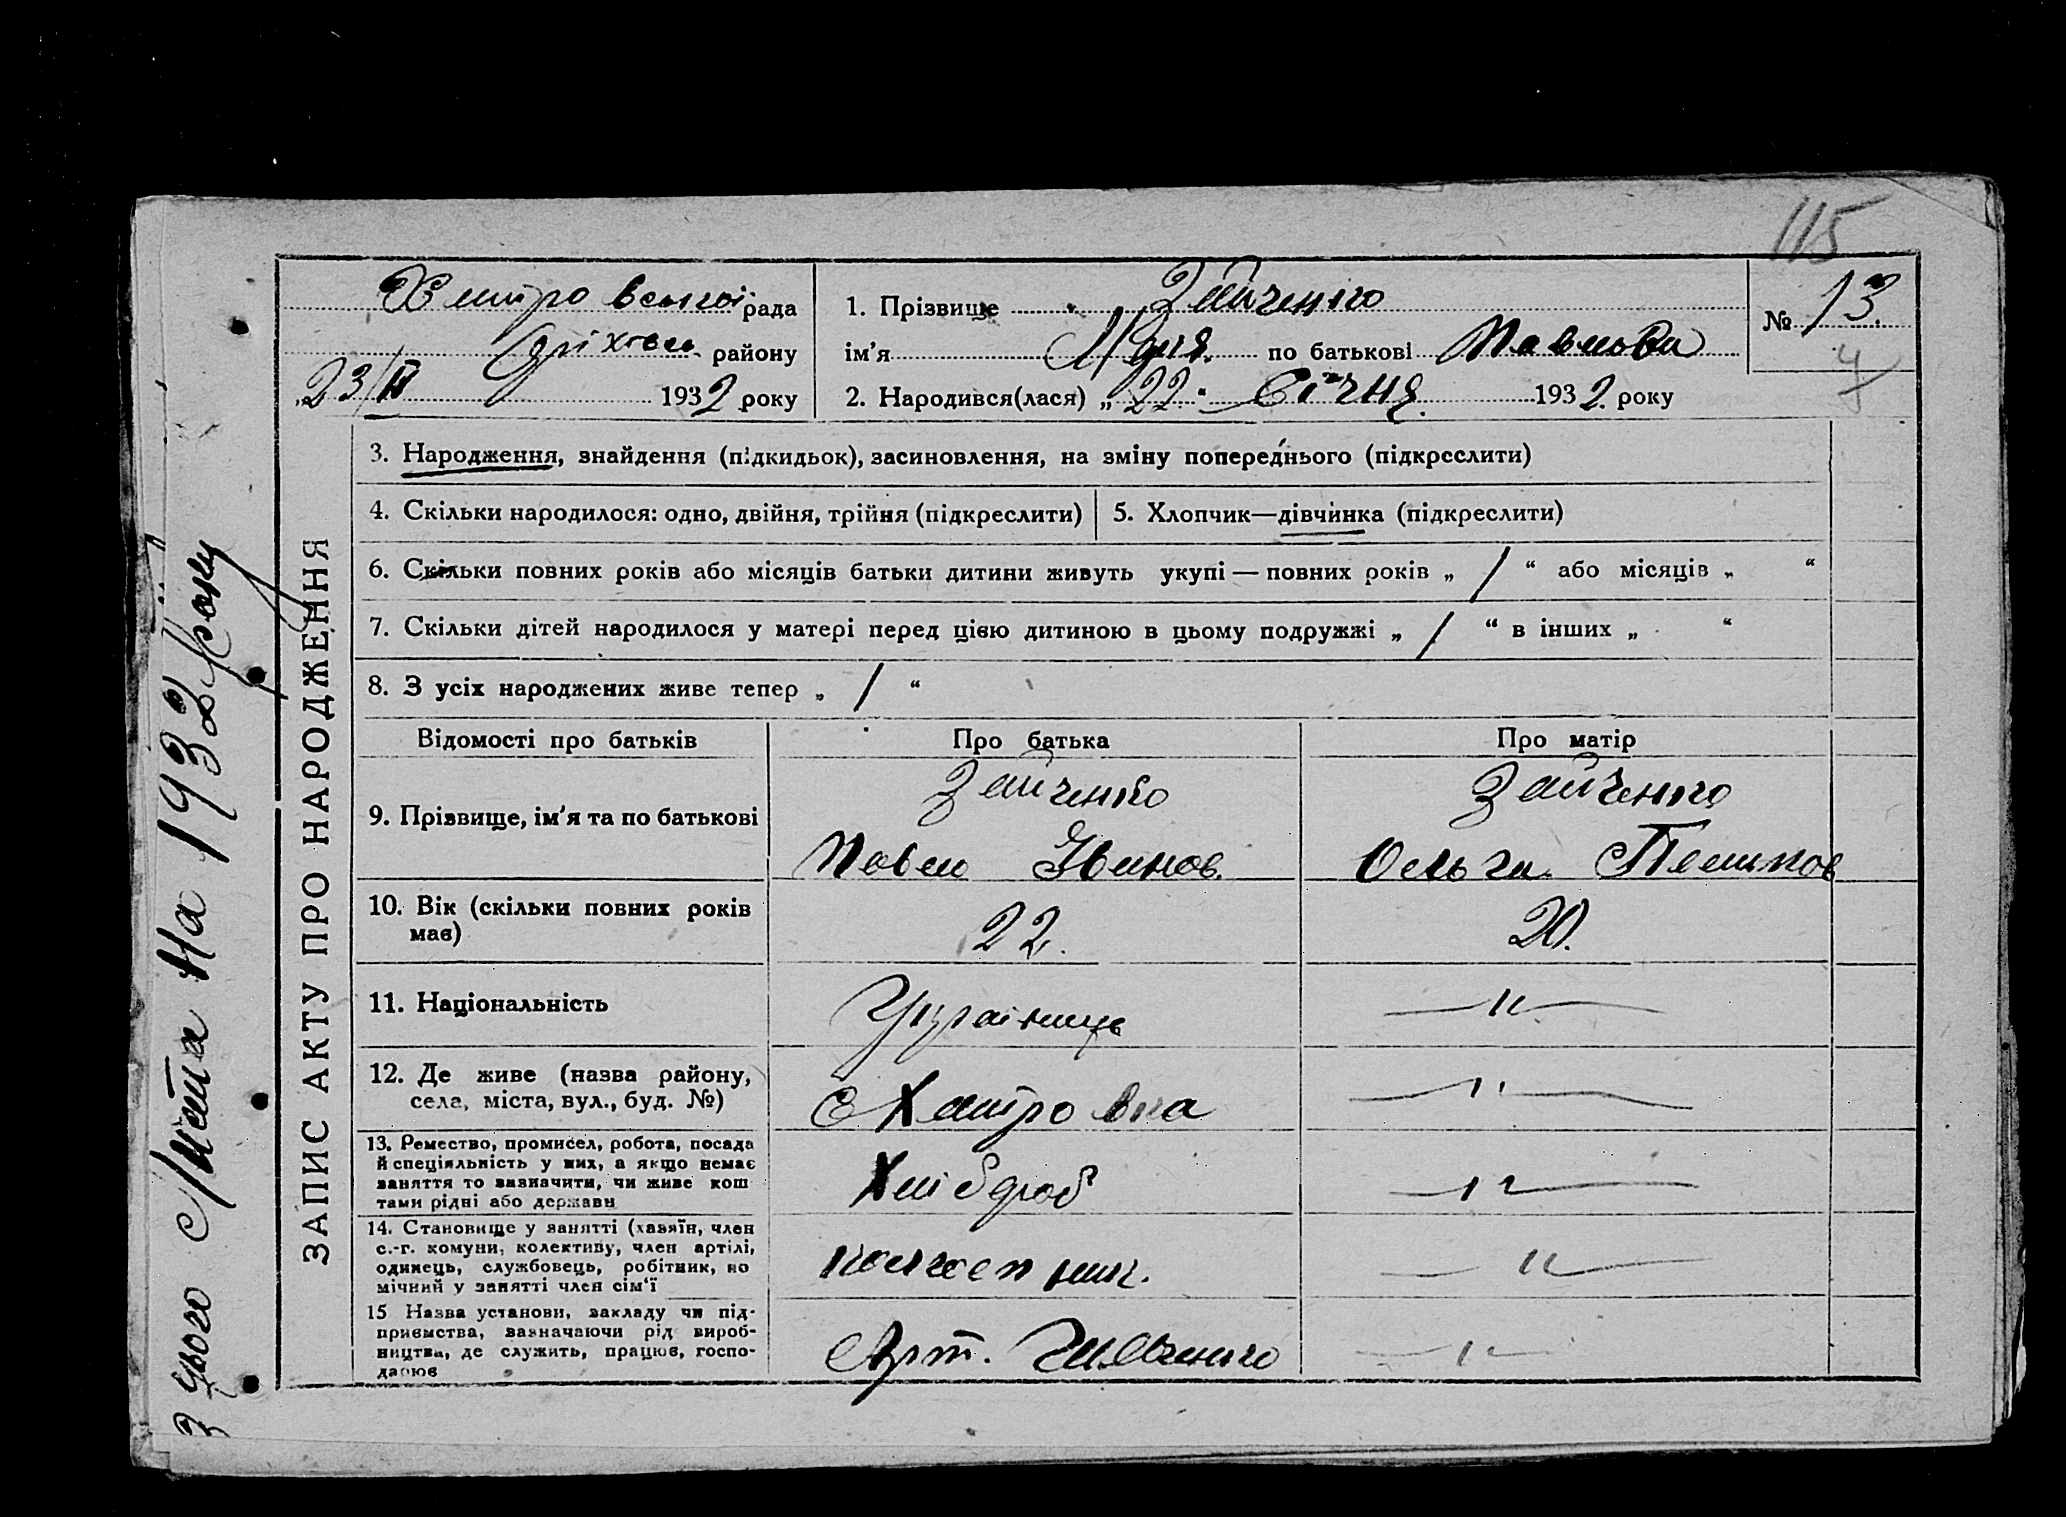 115
рада
1. Прізвище Зайченко
№ 13.
району
ім’я по батькові Павлова
4
23/II 1932 року
2. Народився(лася) „22“ Січня 1932 року
3. Народження, знайдення (підкидьок), засиновлення, на зміну попереднього (підкреслити)
4. Скільки народилося: одно, двійня, трійня (підкреслити)
5. Хлопчик—дівчинка (підкреслити)
6. Скільки повних років або місяців батьки дитини живуть укупі — повних років „ / “ або місяців „ “
7. Скільки дітей народилося у матері перед цією дитиною в цьому подружжі „ / “ в інших „ “
8. З усіх народжених живе тепер „ / “
Відомості про батьків
Про батька
Про матір
9. Прізвище, ім’я та по батькові
Зайченко
Павло Иванов.
Зайченко
Ольга
10. Вік (скільки повних років
має)
22.
20.
11. Національність
Українець
— " —
12. Де живе (назва району,
села, міста, вул., буд. №)
— " —
13. Ремество, промисел, робота, посада
й спеціяльність у них, а якщо немає
заняття то зазначити, чи живе кош
тами рідні або держави
Хлібороб
— " —
14. Становище у занятті (хазяїн, член
с.-г. комуни, колективу, член артілі,
одинець, службовець, робітник, по
мічний у занятті член сім’ї
колгоспник.
— " —
15 Назва установи, закладу чи під-
приємства, зазначаючи рід вироб-
ництва, де служить, працює, госпо-
дарює
Арт.
— " —
ЗАПИС АКТУ ПРО НАРОДЖЕННЯ
З цього Листа На 1932 року